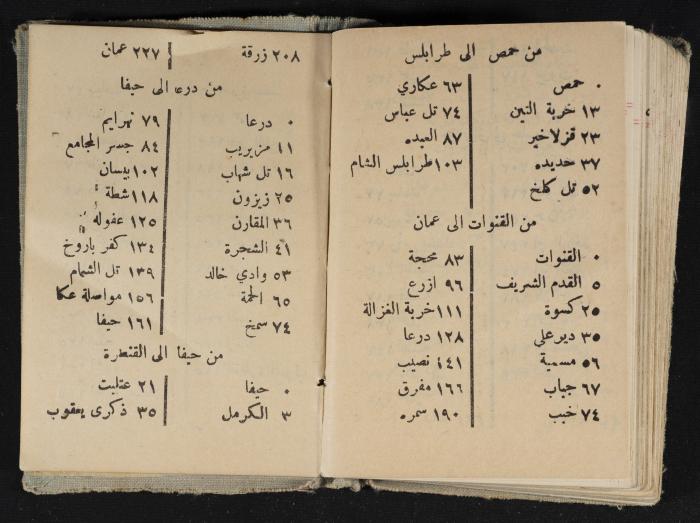 من حمص الى طرابلس
٠ حمص
١٣ خربة التين
٢٣ قزلاخير
٣٧ حديده
٥٢ تل كلخ
٦٣ عكاري
٧٤ تل عباس
٨٧ العبده
١٠٣ طرابلس الشام
من القنوات الى عمان
٠ القنوات
٥ القدم الشريف
٢٥ كسوة
٣٥ ديرعلي
٥٦ مسمية
٦٧ جباب
٧٤ خبب
٨٣ محجة
٩٦ ازرع
١١١ خربة الغزالة
١٢٨ درعا
١٤١ نصيب
١٦٦ مفرق
١٩٠ سمره
٢٠٨ زرقة
٢٢٧ عمان
من درعا الى حيفا
٠ درعا
١١ مزيريب
١٦ تل شهاب
٢٥ زيزون
٣٦ المقارن
٤١ الشجرة
٥٣ وادي خالد
٦٥ الحمة
٧٤ سمخ
٧٩ نهرايم
٨٤ جسر المجامع
١٠٢ بيسان
١١٨ شطة
١٢٥ عفوله
١٣٤ كفر باروخ
١٣٩ تل الشمام
١٥٦ مواصلة عكا
١٦١ حيفا
من حيفا الى القنطرة
٠ حيفا
٣ الكرمل
٢١ عتليت
٣٥ ذكرى يعقوب